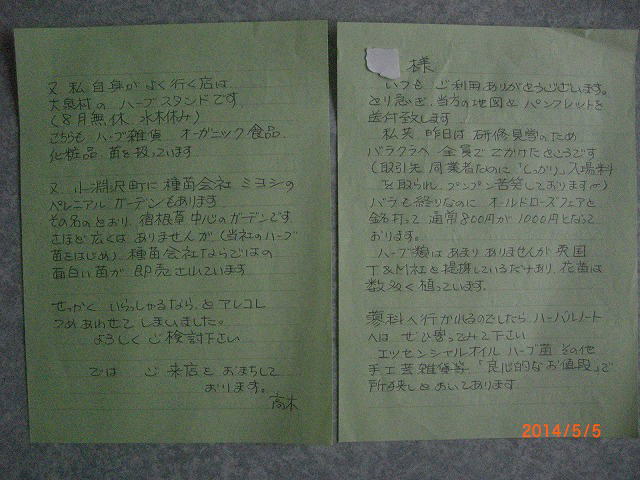 様
いつも ご利用ありがとうございます。
とり急ぎ、当方の地図とパンフレットを
送付致します
私共 昨日は 研修見学のため
バラクラへ 全員で でかけたところです
(取引先 同業者なのに「しっかり」入場料
を取られ、プンプン苦笑しております)
バラも終りなのに オールドローズフェアと
銘打って 通常800円が1000円となって
おります。
ハーブ類は あまり ありませんが 英国
T&M社と提携しているだけあり、花苗は
数多く植っています。
蓼科へ行かれるのでしたら、ハーバルノート
へは ぜひ寄ってみて下さい
エッセンシャルオイル ハーブ苗 その他
手工芸雑貨等 「良心的なお値段」で
所狭しとおいてあります
又 私自身が よく行く店は
大泉村の ハーブスタンドです
(8月無休 水木休み)
こちらも ハーブ雑貨 オーガニック食品
化粧品 苗を扱っています
又 小淵沢町に 種苗会社 ミヨシの
ペレニアル ガーデンもあります
その名のとおり、宿根草中心のガーデンです
さほど広くは ありませんが (当社のハーブ
苗をはじめ)、種苗会社ならではの
面白い苗が 即売されています
せっかく いらっしゃるなら、と アレコレ
つめあわせて しまいました。
よろしく ご検討下さい
では ご来店を おまちして
おります。
高木
2014/5/5